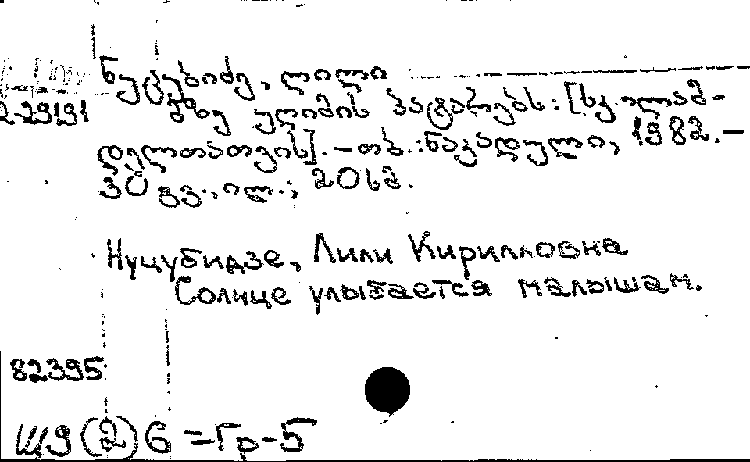 ნუცუბიძე, ლილი
2-29191
მზე უღიმის პატარებს: [სკ. ილამ-
დელთათვის]. – თბ.: ნაკადული, 1982. –
30 გვ., ილ.; 20 სმ.
Нуцубидзе, Лили Кирилловна
Солнце улыбается малышам.
82395
Ш9(2)6 = Гр-5